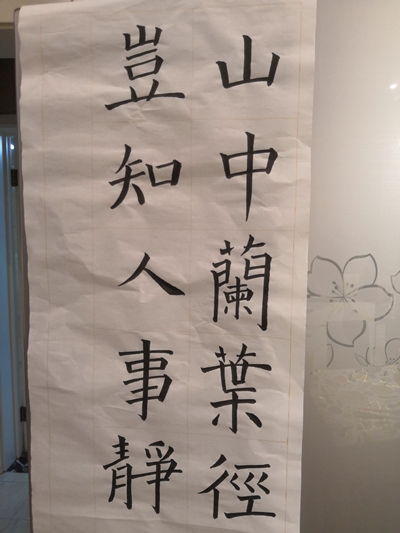 山中蘭葉徑
豈知人事靜